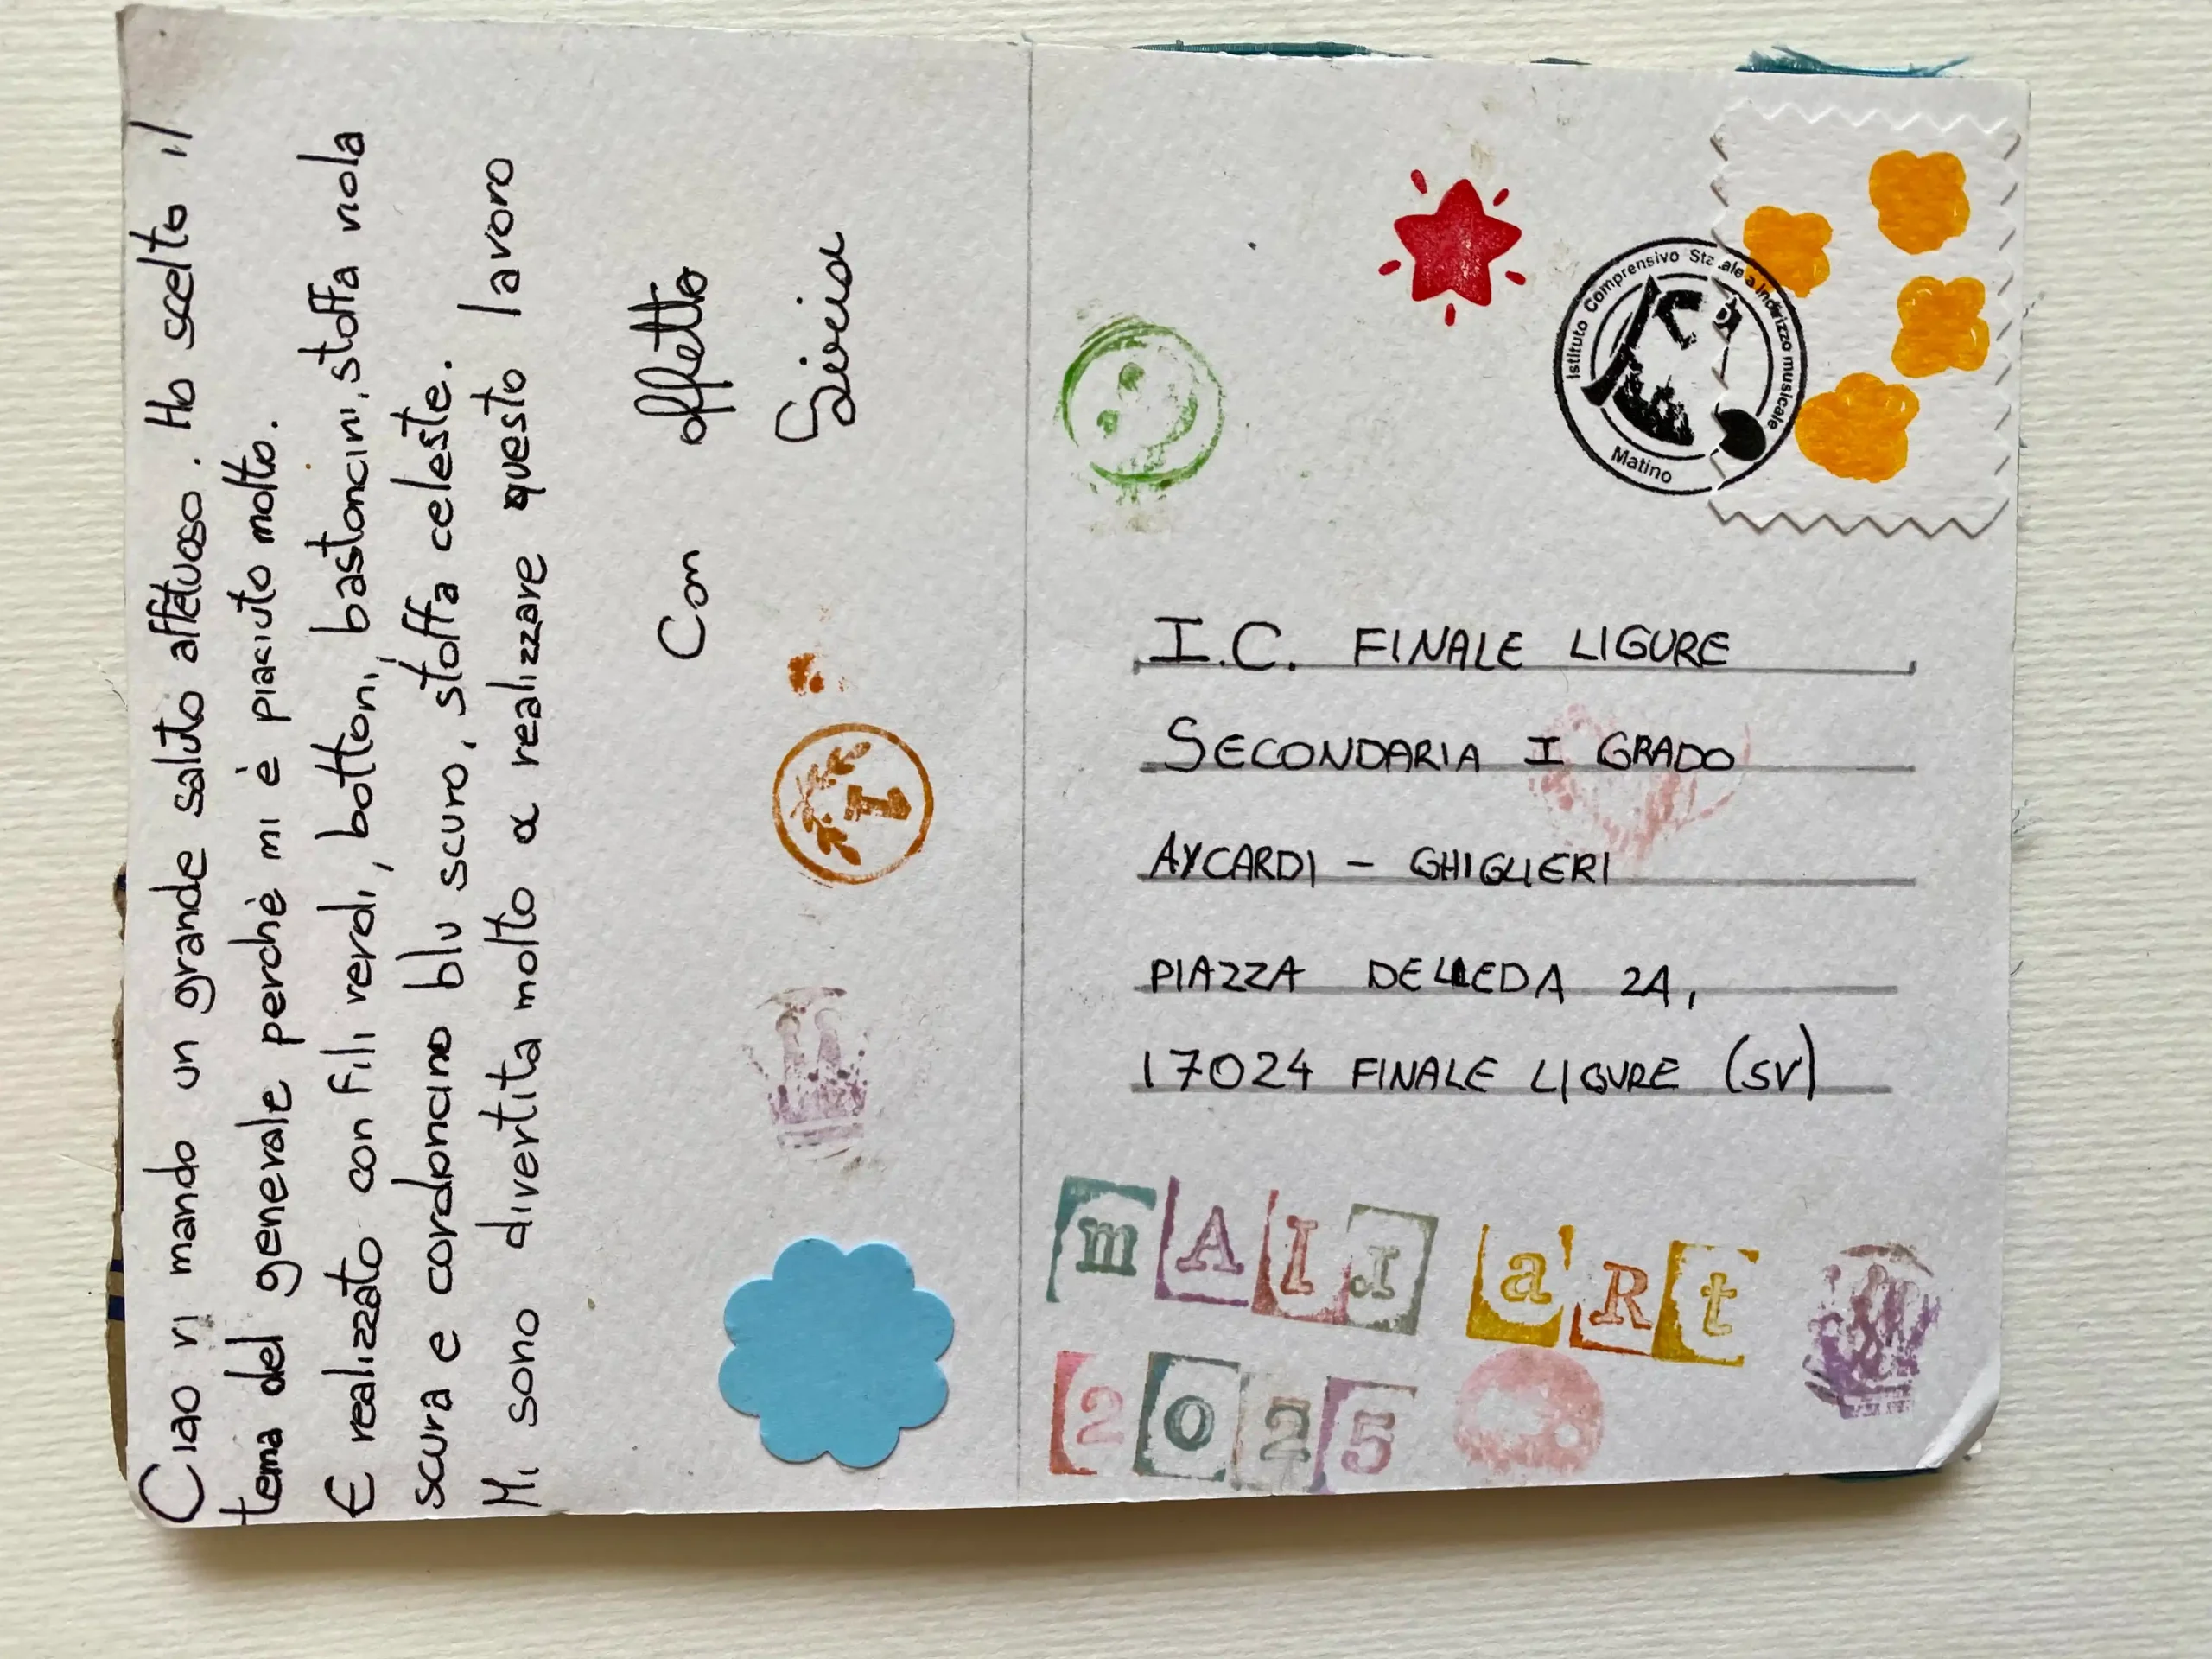 Ciao vi mando un grande saluto affetuoso. Ho scelto il
tema del generale perchè mi è piaciuto molto.
È realizzato con fili verdi, bottoni, bastoncini, stoffa viola
scura e cordoncino blu scuro, stoffa celeste.
Mi sono divertita molto a realizzare questo lavoro
Con affetto
Silvia
1
Istituto Comprensivo Statale a Indirizzo musicale
Matino
I.C. FINALE LIGURE
SECONDARIA I GRADO
AYCARDI - GHIGLIERI
PIAZZA DELLEDA 2A,
17024 FINALE LIGURE (SV)
mALI aRt
2025